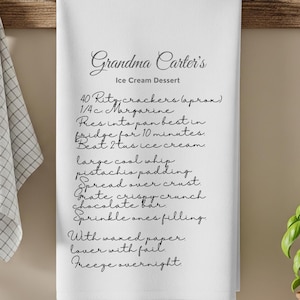 Grandma Carter's
Ice Cream Dessert
40 Ritz crackers (aprox)
1/4 c Margarine.
Pres into pan best in
fridge for 10 minutes.
Beat 2 tus ice cream.
large cool whip
pistachio padding.
Spread over crust.
Grate crispy crunch
chocolate bar.
Sprinkle ones filling.
With waxed paper.
lover with foil
Freeze overnight.